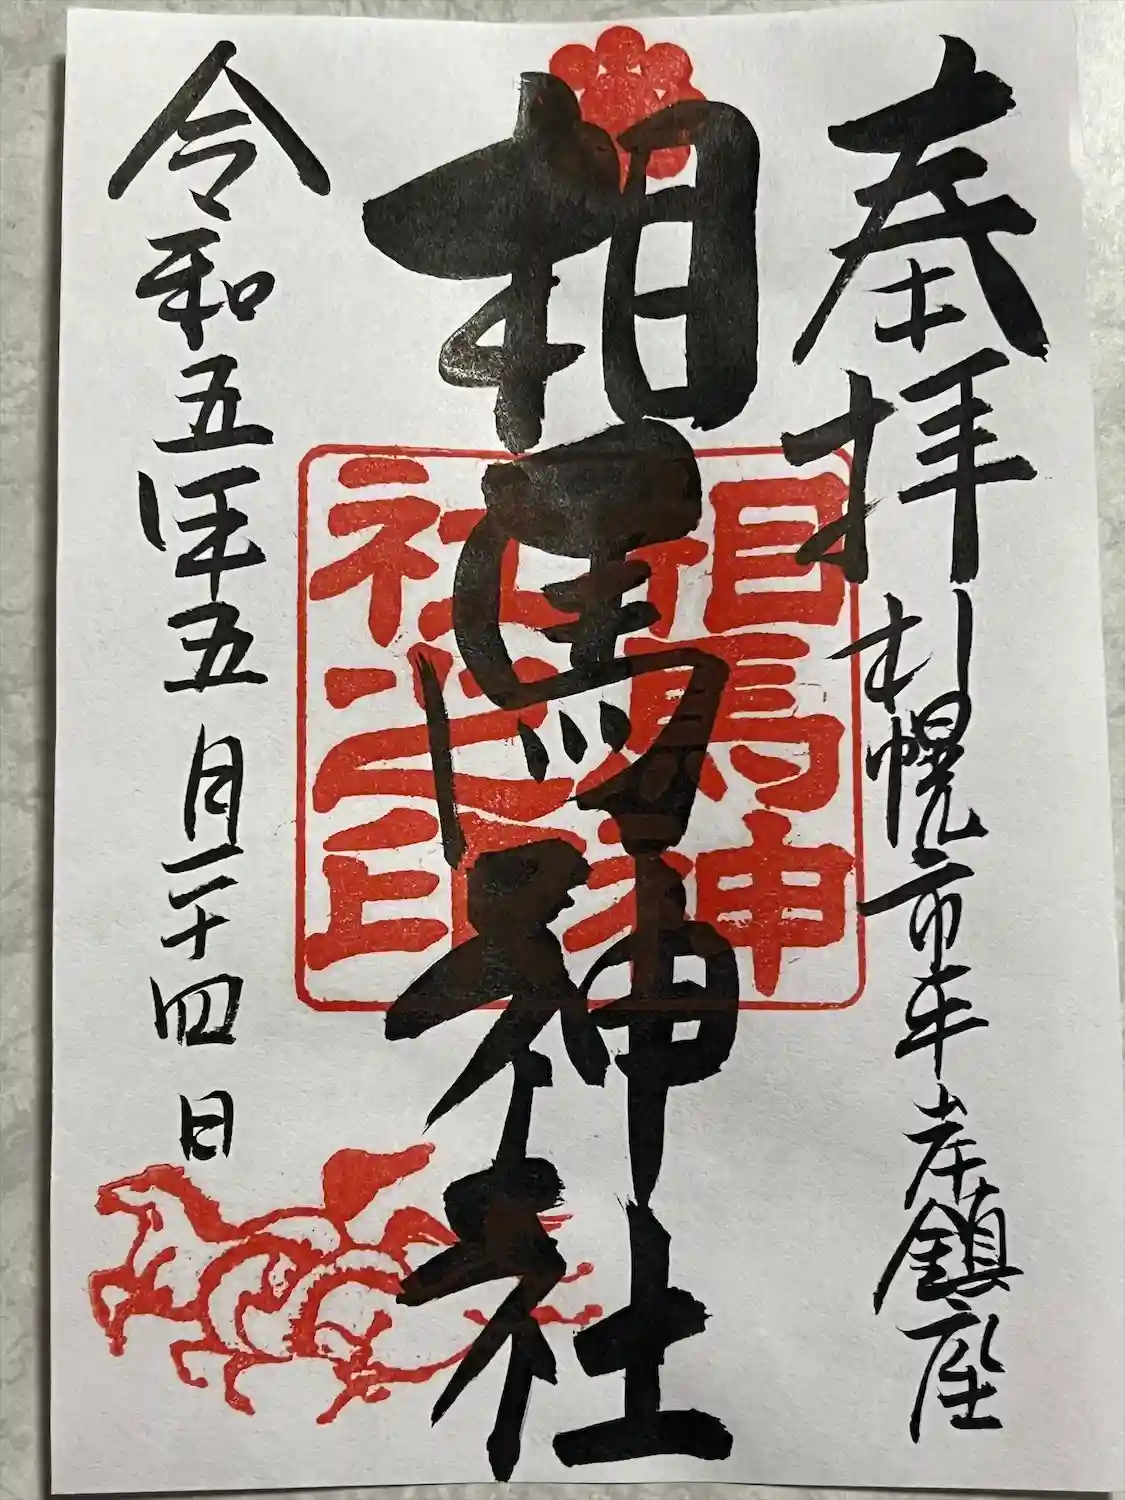 奉拝
札幌市平岸鎮座
相馬神社
相馬神
社之印
令和五年五月二十四日